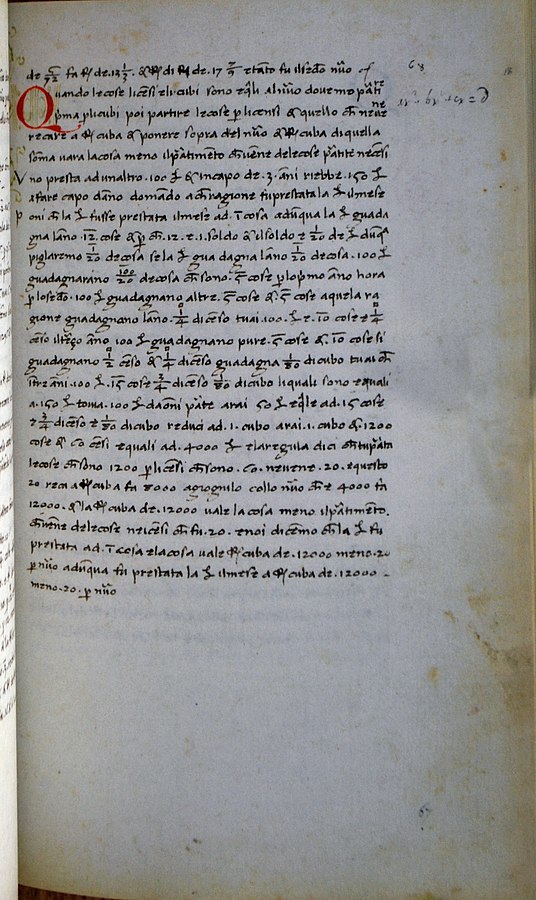 fa ℞ de. 13 1/3. & ℞ di ℞ de. 17 7/9 e tāto fu il secōdo nūo
Quando le cose li cēsi elli cubi sono eq̄li al nūo dovemo ptire
pma p li cubi poi partire le cose p li censi & quello che neve
recare a ℞ cuba & ponere sopra del nūo & ℞ cuba di quella
sōma vara la cosa meno il ptimēto che vēne de le cose ptite ne cēsi
no presta ad un altro. 100 £ & in capo de. 3. āni riebbe. 150 £
a fare capo dāno domādo a che ragione fu prestata la £ il mese
poni che la £ fusse prestata il mese ad. 1̄ cosa adūqua la £ guada
gna lāno. 12. cose & p che. 12. è. 1. soldo & il soldo è 1/20 de £ dūq̄
pigliaremo 1/20 de cosa se la £ guadagna lāno 1/20 de cosa. 100. £
guadagnarāno 100/20 de cosa che sono. 5̄ cose p lo pmo āno hora
p lo secōdo. 100 £ guadagnano altre. 5̄ cose & 5̄ cose a quela ra
gione guadagnano lāno. 1/4 di cēso tu ai. 100. £ e. 10 cose e 1/4
cēso il terço āno. 100 £ guadagnano pure. 5̄ cose & 10 cose si
guadagnano 1/2 cēso & 1/4 di cēso guadagna 1/80 di cubo tu ai che
ī tre āni. 100. £. 15 cose 3/4 di cēso 1/80 di cubo li quali sono equali
a. 150 £ to via. 100 £ da oni pte arai 50 £ eq̄le ad. 15 cose
e 3/4 di cēso e 1/80 di cubo reduci ad. 1. cubo arai. 1. cubo & 1200
cose & 60 cēsi equali ad. 4000 £ e la regula dici che tu pta
le cose che sono 1200 p li cēsi che sono. 60. ne vene. 20. e questo
20 reca a ℞ cuba fa 8000 agiogni lo collo nūo che è 4000 fa
12000. & la ℞ cuba de. 12000 vale la cosa meno il ptimēto.
che vēne de le cose nei cēsi che fu. 20. e noi dicēmo che la £ fu
prestata ad. 1̄ cosa e la cosa vale ℞ cuba de. 12000 meno. 20
p nūo adūqua fu prestata la £ il mese a ℞ cuba de. 12000.
meno. 20. p nūo